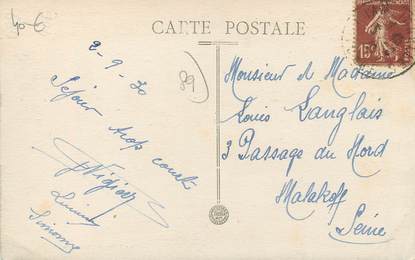 40-6
CARTE POSTALE
89
15c
2-9-30
Séjour trop court
Lucien
Simonne
Monsieur & Madame
Louis Langlais
3 Passage du Nord
Malakoff
Seine